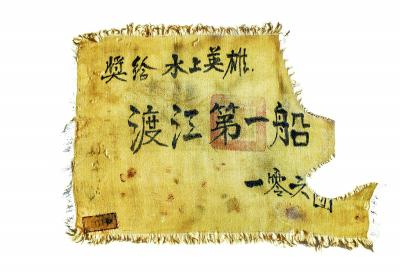 獎给水上英雄.
渡江第一船
一零六团